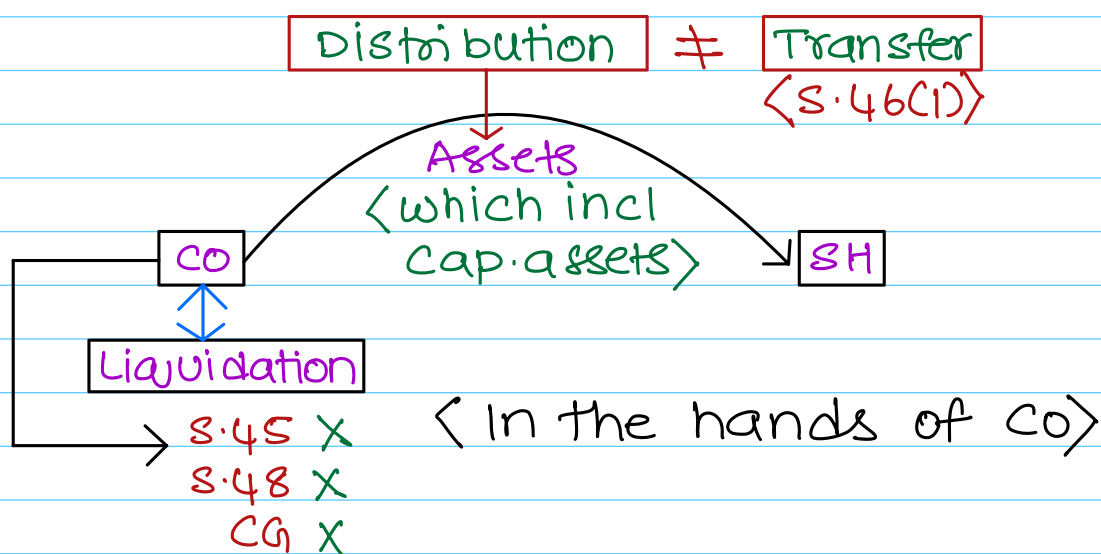 Distribution ≠ Transfer
<S.46(1)>
Assets
<which incl
cap.assets>
CO
SH
Liquidation
S.45 X
<In the hands of co>
S.48 X
CG X